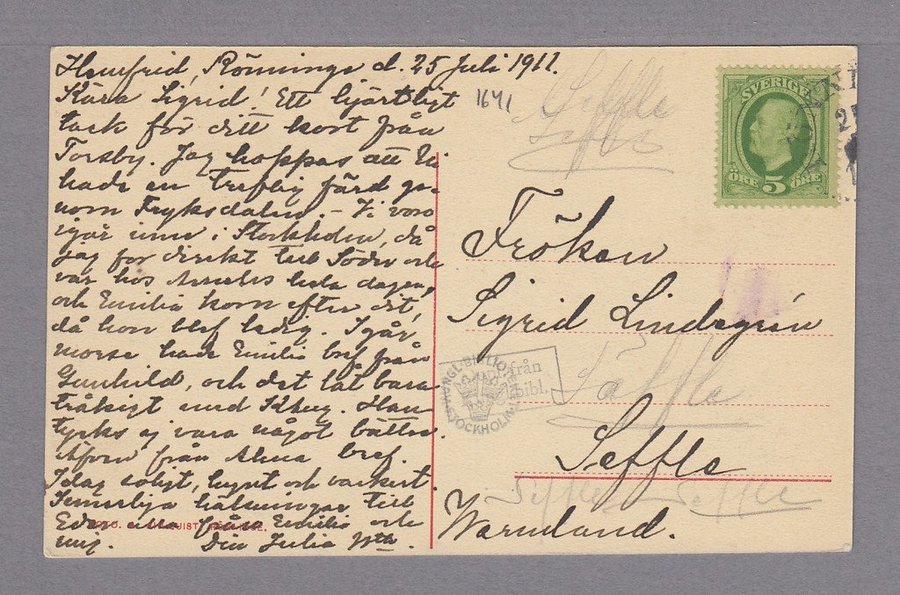 Hemfrid, Rönninge d. 25 Juli 1911.
Kära Sigrid! Ett hjärtligt
tack för ditt kort från
Torsby. Jag hoppas att Ni
hade en treflig färd ge-
nom Fryksdalen. - Vi voro
igår inne i Stockholm, då
jag for direkt till Söder och
var hos hela dagen,
och Emilia kom efter dit,
då hon blef ledig. Igår
morse hade Emilia bref från
Gunhild, och det lät bara
tråkigt med Khug. Han
tycks ej vara något bättre.
Äfven från Alma bref.
Idag soligt, lugnt och vackert.
Innerliga hälsningar till
Eder alla från Emilia och
mig. Din Julia
1641
Seffle
Seffle
SVERIGE
ÖRE 5 ÖRE
Fröken
Sigrid Lindegrén
från
bibl.
KUNGL. BIBLIOTEKET
STOCKHOLM
Säffle
Seffle
Seffle Seffle
Wärmland.